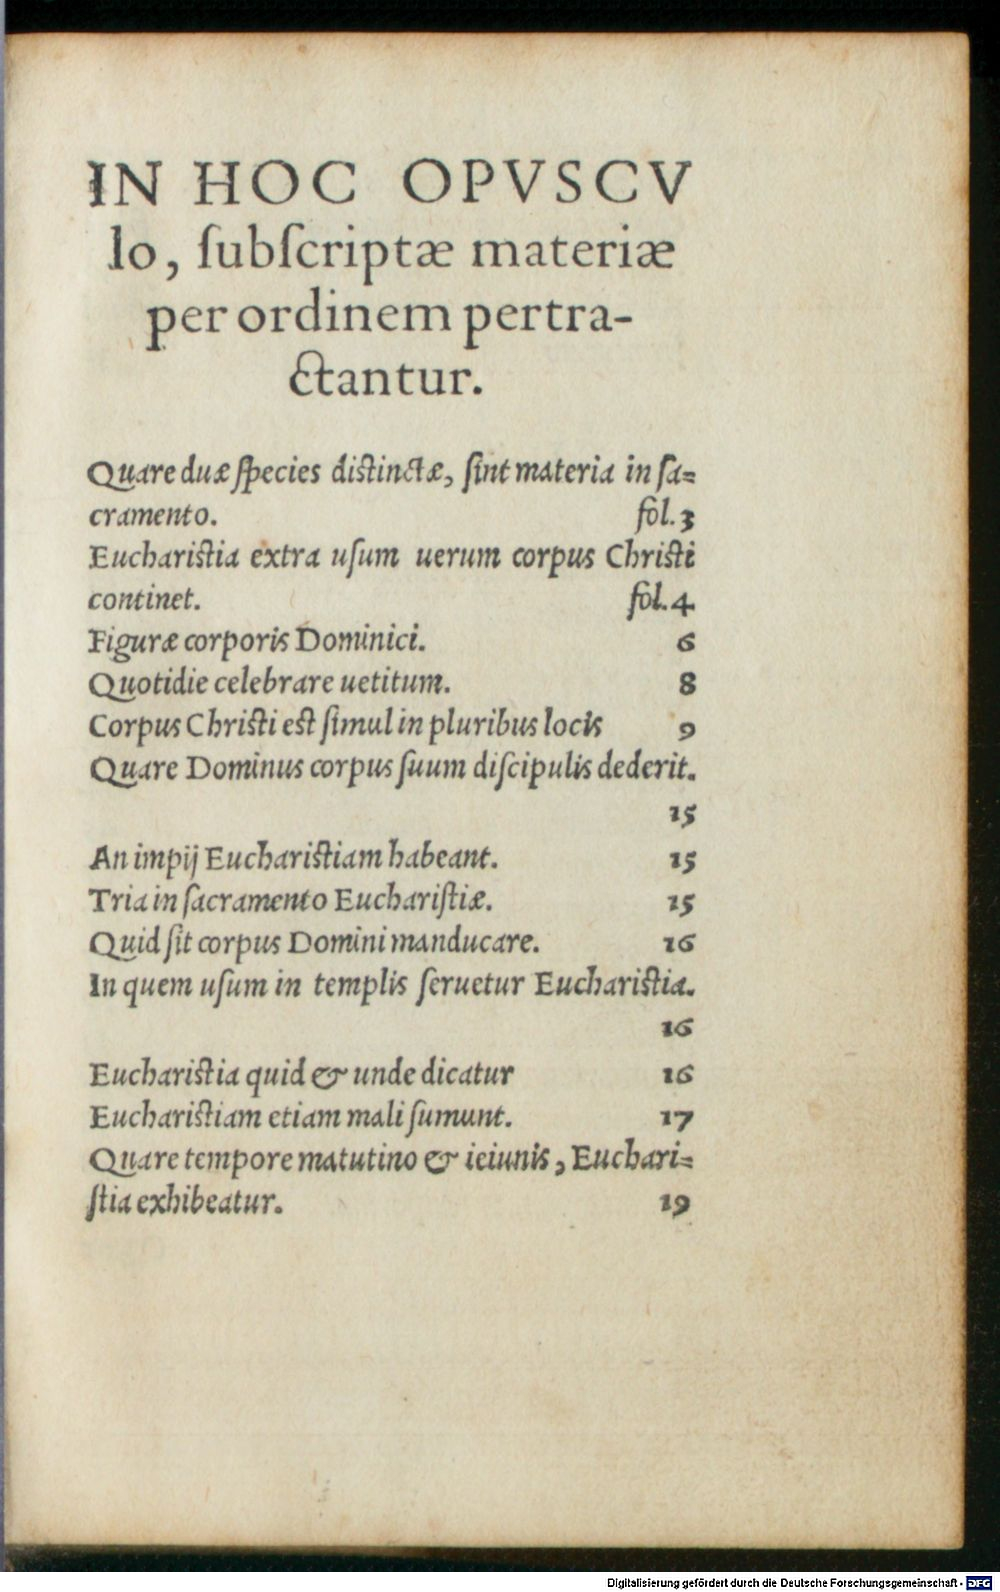 IN HOC OPVSCV
lo, ſubſcriptæ materiæ
per ordinem pertra-
ctantur.
Quare duæ ſpecies distinctæ, ſint materia in ſa=
cramento. fol. 3
Eucharistia extra uſum uerum corpus Christi
continet. fol. 4
Figuræ corporis Dominici. 6
Quotidie celebrare uetitum. 8
Corpus Christi est ſimul in pluribus locis 9
Quare Dominus corpus ſuum diſcipulis dederit.
15
An impij Eucharistiam habeant. 15
Tria in ſacramento Euchariſtiæ. 15
Quid ſit corpus Domini manducare. 16
In quem uſum in templis ſeruetur Eucharistia.
16
Eucharistia quid & unde dicatur 16
Eucharistiam etiam mali ſumunt. 17
Quare tempore matutino & ieiunis, Euchari=
ſtia exhibeatur. 19
Digitalisierung gefördert durch die Deutsche Forschungsgemeinschaft - DFG